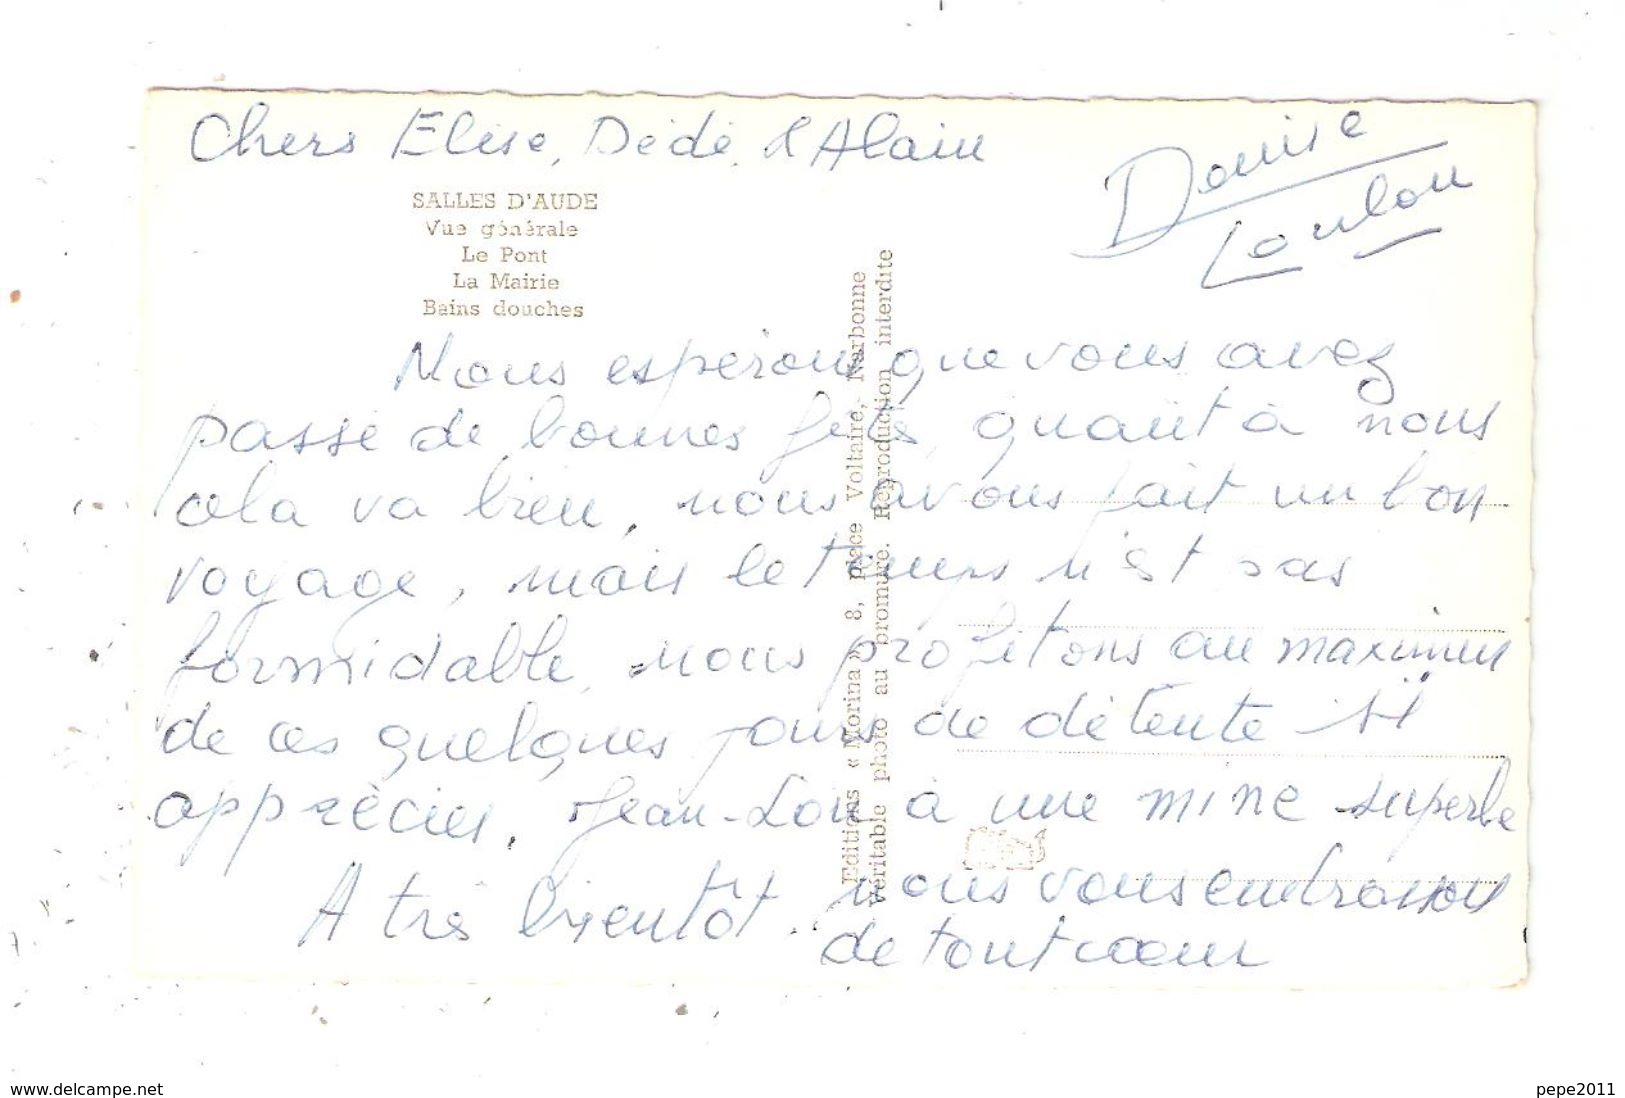 Chers Elise, Dédé, & Alain
Denise
Loulou
SALLES D'AUDE
Vue générale
Le Pont
La Mairie
Bains douches
Editions « Morina » 8, place Voltaire, Narbonne
Véritable photo au bromure. Reproduction interdite
Nous espérons que vous avez
passé de bonnes fêtes, quant à nous
cela va bien, nous avons fait un bon
voyage, mais le temps n'est pas
formidable, nous profitons au maximum
de ces quelques jours de détente si
appréciés, Jean-Lou à une mine superbe
A très bientôt. nous vous embrassons
de tout cœur
www.delcampe.net
pepe2011